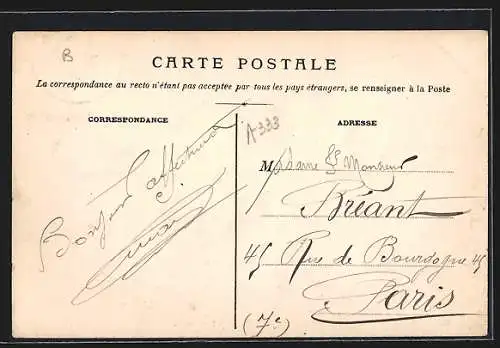 B
CARTE POSTALE
La correspondance au recto n'étant pas acceptée par tous les pays étrangers, se renseigner à la Poste
CORRESPONDANCE
A333
Bonjour affectueux
ADRESSE
Madame & Monsieur
Bréant
45 Rue de Bourgogne 45
Paris
(7e)